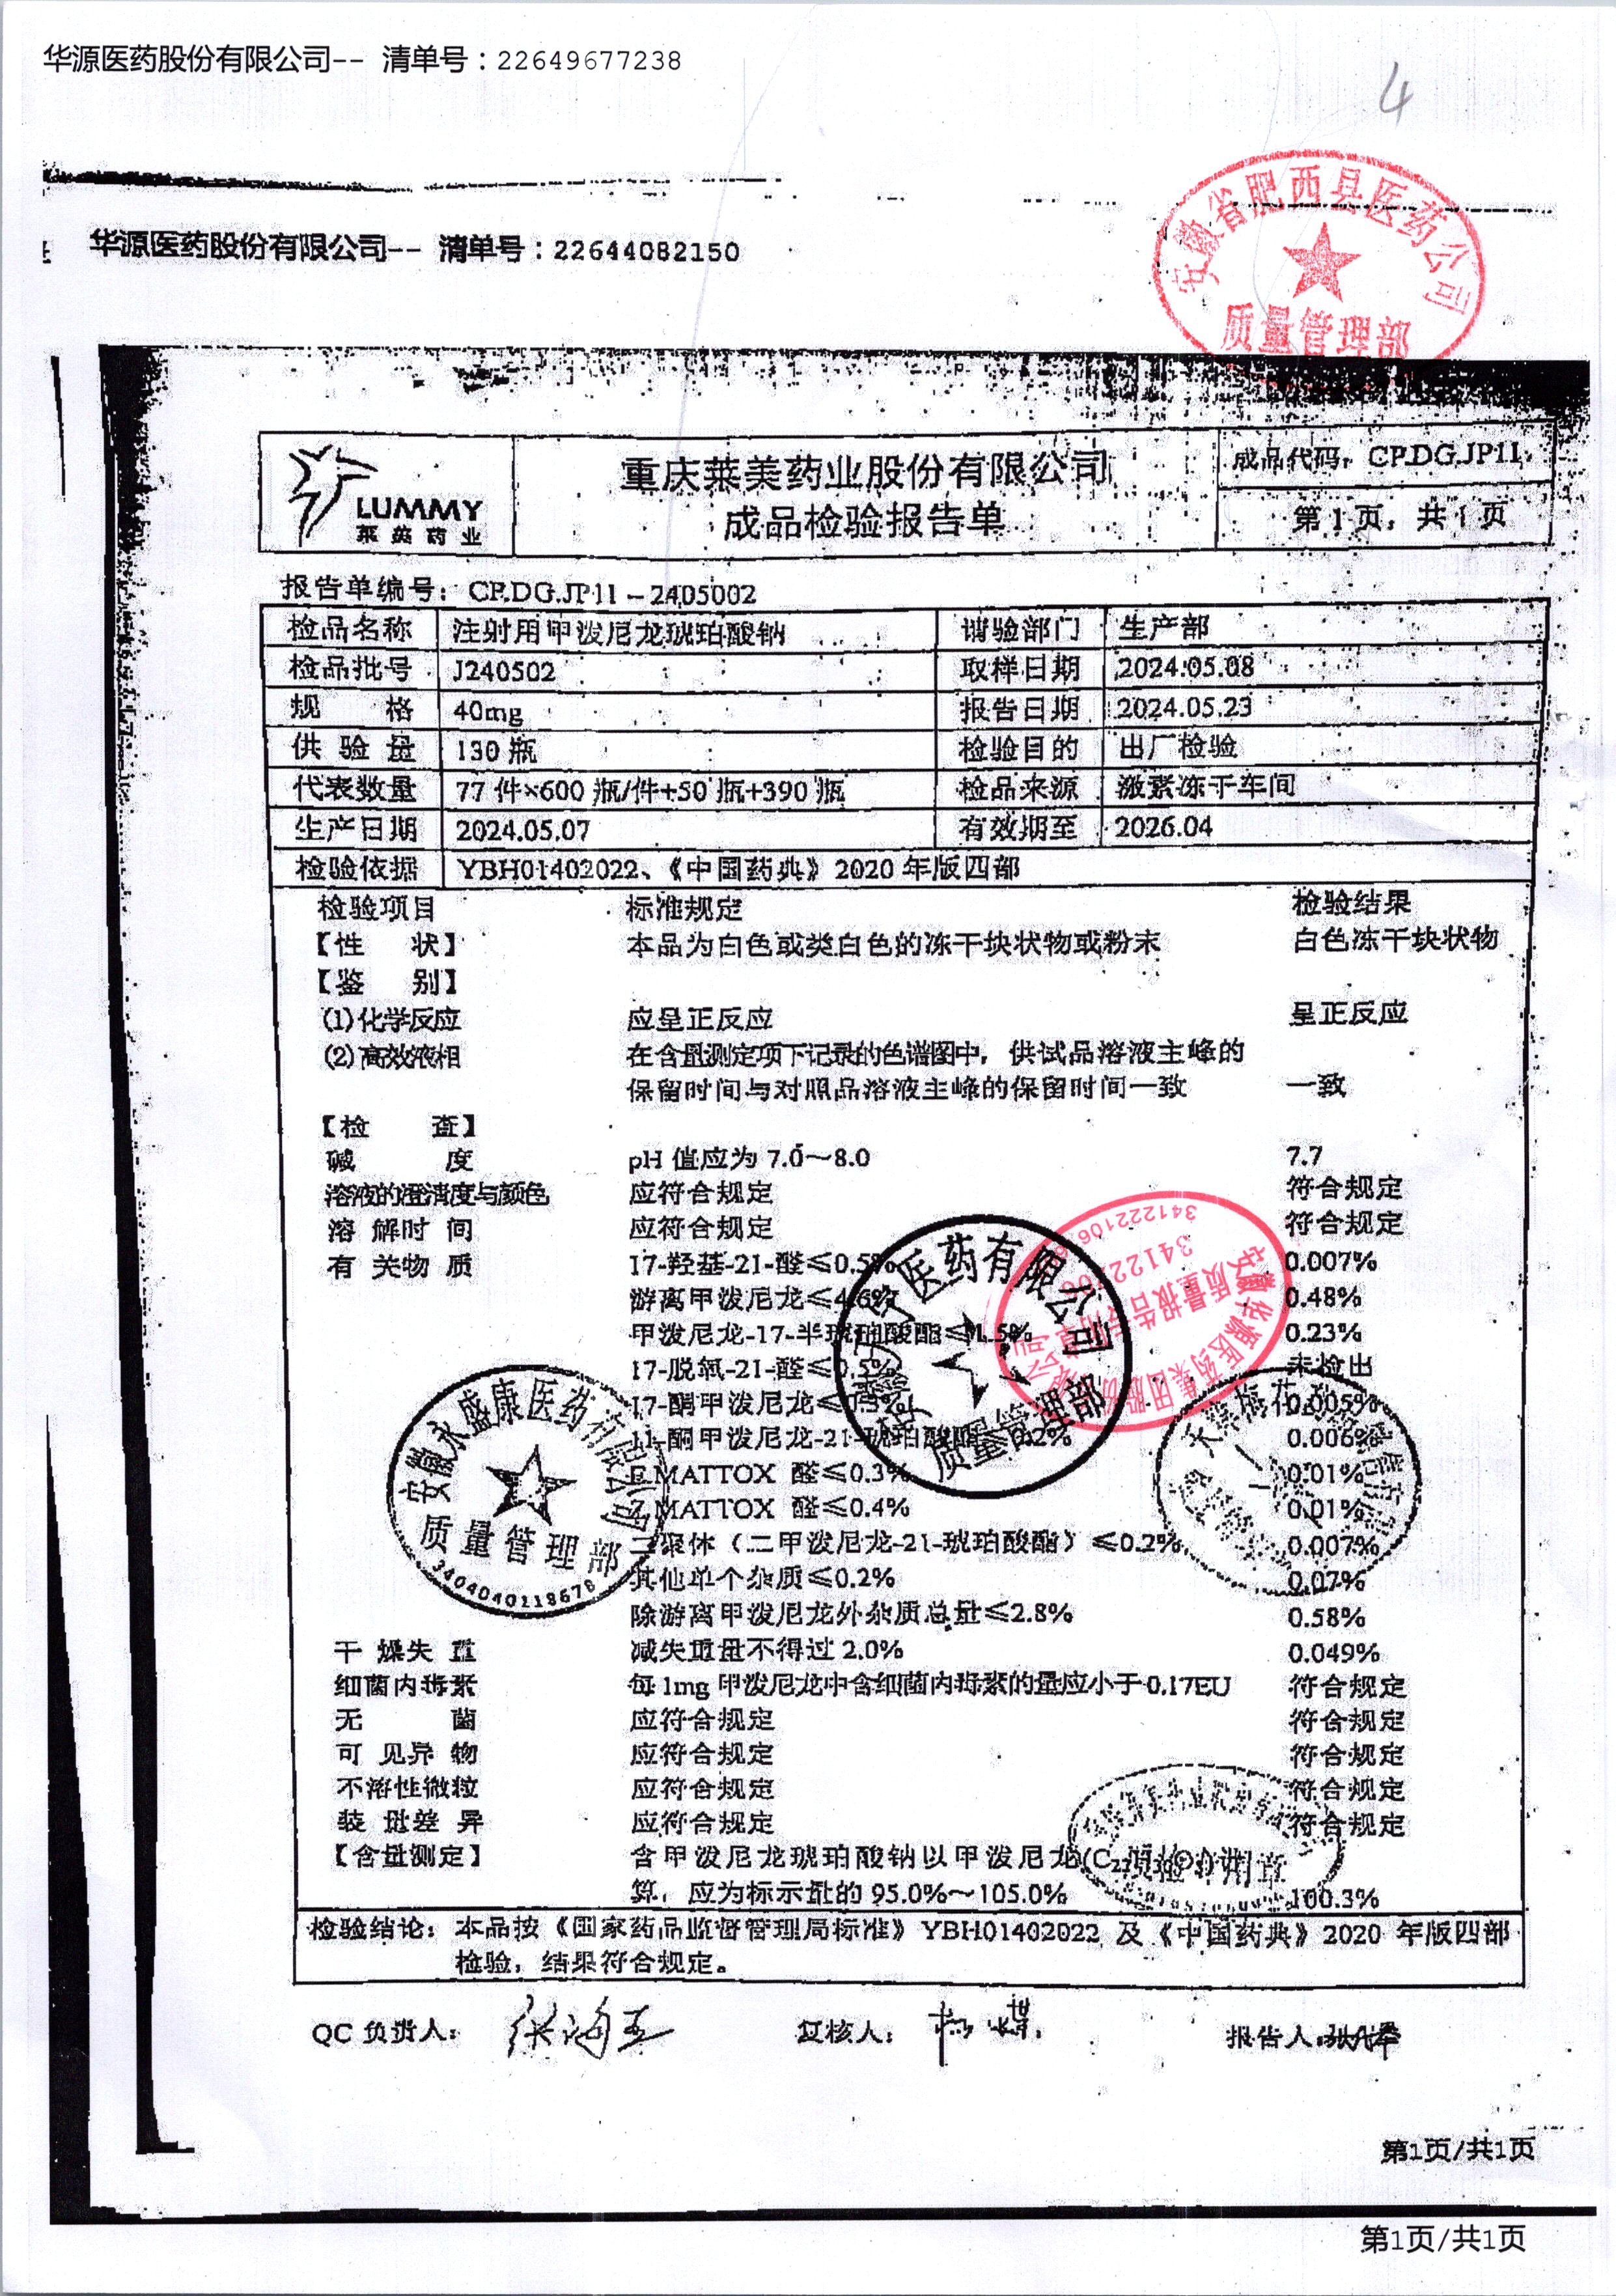 华源医药股份有限公司-- 清单号：22649677238
4
安徽省肥西县医药公司
质量管理部
华源医药股份有限公司-- 清单号：22644082150
LUMMY
莱美药业
重庆莱美药业股份有限公司
成品检验报告单
成品代码：CP.DG.JP11
第 1 页，共 1 页
报告单编号：CP.DG.JP11－2405002
检品名称 注射用甲泼尼龙琥珀酸钠 请验部门 生产部
检品批号 J240502 取样日期 2024.05.08
规 格 40mg 报告日期 2024.05.23
供 验 量 130 瓶 检验目的 出厂检验
代表数量 77 件×600 瓶/件+50 瓶+390 瓶 检品来源 激素冻干车间
生产日期 2024.05.07 有效期至 2026.04
检验依据 YBH01402022、《中国药典》2020 年版四部
检验项目 标准规定 检验结果
【性 状】 本品为白色或类白色的冻干块状物或粉末 白色冻干块状物
【鉴 别】
(1)化学反应 应呈正反应 呈正反应
(2)高效液相 在含量测定项下记录的色谱图中，供试品溶液主峰的
保留时间与对照品溶液主峰的保留时间一致 一致
【检 查】
碱 度 pH 值应为 7.0～8.0 7.7
溶液的澄清度与颜色 应符合规定 符合规定
溶 解 时 间 应符合规定 符合规定
有 关 物 质 17-羟基-21-醛≤0.5% 0.007%
游离甲泼尼龙≤4.6% 0.48%
甲泼尼龙-17-半琥珀酸酯≤1.5% 0.23%
17-脱氧-21-醛≤0.5% 未检出
17-酮甲泼尼龙≤0.3% 0.005%
11-酮甲泼尼龙-21-琥珀酸酯 0.2% 0.006%
E MATTOX 醛≤0.3% 0.01%
Z MATTOX 醛≤0.4% 0.01%
二聚体（二甲泼尼龙-21-琥珀酸酯）≤0.2% 0.007%
其他单个杂质≤0.2% 0.07%
除游离甲泼尼龙外杂质总量≤2.8% 0.58%
干 燥 失 重 减失重量不得过 2.0% 0.049%
细菌内毒素 每 1mg 甲泼尼龙中含细菌内毒素的量应小于 0.17EU 符合规定
无 菌 应符合规定 符合规定
可 见 异 物 应符合规定 符合规定
不溶性微粒 应符合规定 符合规定
装 量 差 异 应符合规定 符合规定
【含量测定】 含甲泼尼龙琥珀酸钠以甲泼尼龙(C₂₂
算，应为标示量的 95.0%～105.0% 100.3%
安徽永盛康医药有限公司
质量管理部
3404040118678
医药有限公司
质量管理部
安徽华源医药集团股份有限公司
质量报告专用章
检验结论：本品按《国家药品监督管理局标准》YBH01402022 及《中国药典》2020 年版四部
检验，结果符合规定。
QC 负责人： 张海玉 复核人： 杨媒 报告人：
第1页/共1页
第1页/共1页